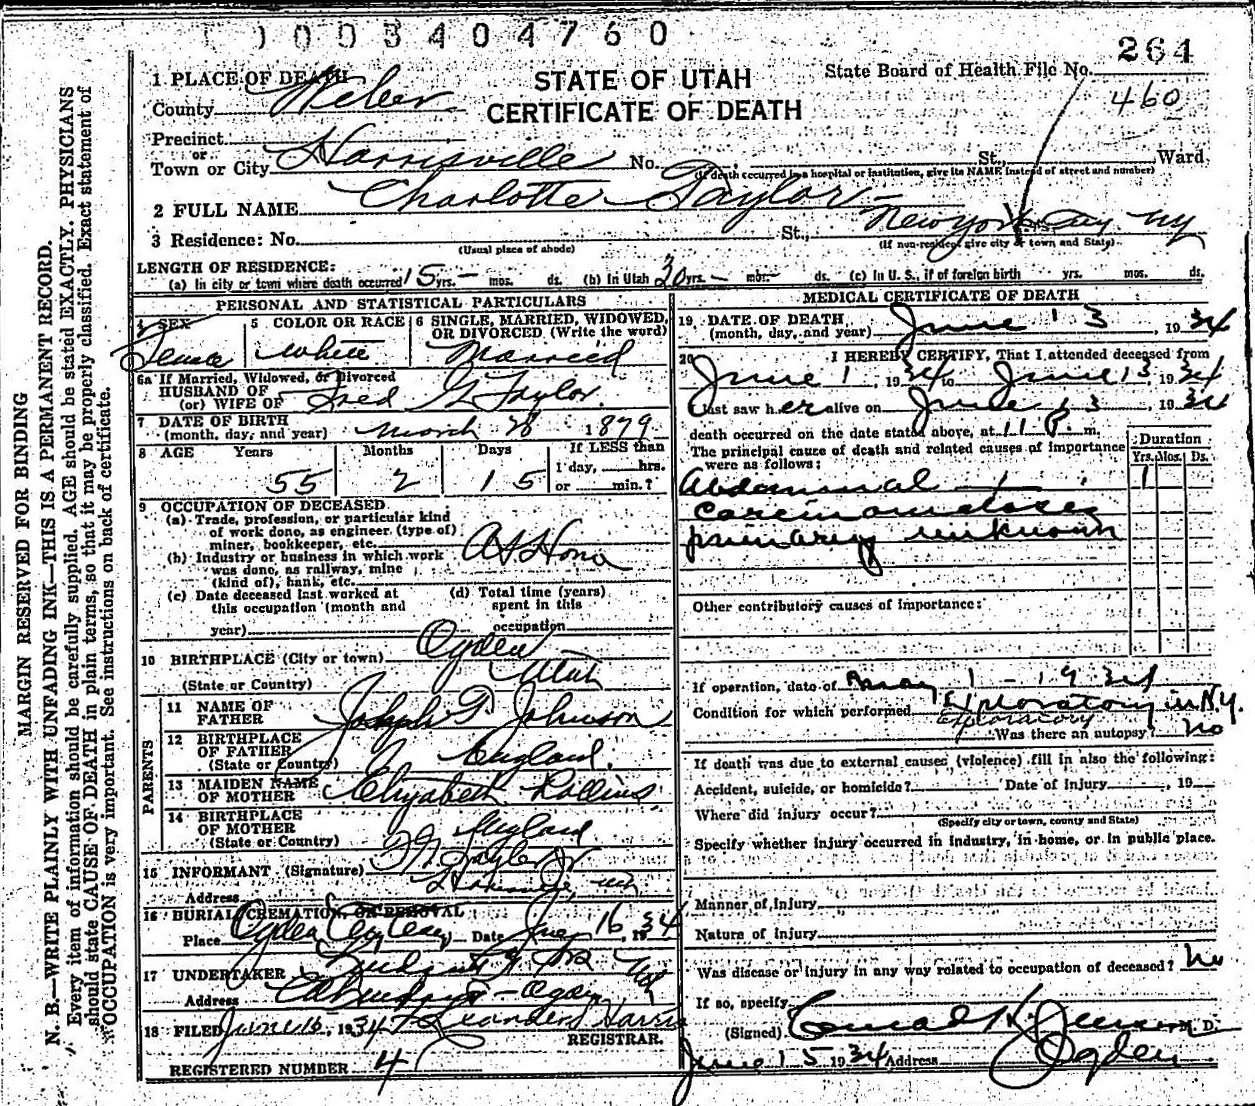 1 0 0 3 4 0 4 7 6 0
264
STATE OF UTAH
CERTIFICATE OF DEATH
State Board of Health File No.
460
1 PLACE OF DEATH
County Weber
Precinct
or
Town or City Harrisville No. St., Ward
(If death occurred in a hospital or institution, give its NAME instead of street and number)
2 FULL NAME Charlotte Taylor
3 Residence: No. St., New York City NY
(Usual place of abode) (If non-resident give city or town and State)
LENGTH OF RESIDENCE:
(a) In city or town where death occurred 15 yrs. - mos. ds. (b) In Utah 30 yrs. - mos. ds. (c) In U. S., if of foreign birth yrs. mos. ds.
PERSONAL AND STATISTICAL PARTICULARS
4 SEX 5 COLOR OR RACE 6 SINGLE, MARRIED, WIDOWED, OR DIVORCED (Write the word)
Female white Married
6a If Married, Widowed, or Divorced
HUSBAND OF
(or) WIFE OF Fred G Taylor.
7 DATE OF BIRTH
(month, day, and year) March 28 1879
8 AGE Years Months Days If LESS than
1 day, hrs.
55 2 15 or min.?
9 OCCUPATION OF DECEASED
(a) Trade, profession, or particular kind
of work done, as engineer (type of)
miner, bookkeeper, etc.
At Home
(b) Industry or business in which work
was done, as railway, mine
(kind of), bank, etc.
(c) Date deceased last worked at (d) Total time (years)
this occupation (month and spent in this
year) occupation
10 BIRTHPLACE (City or town) Ogden
(State or Country) Utah
PARENTS
11 NAME OF
FATHER Joseph Johnson
12 BIRTHPLACE
OF FATHER England.
(State or Country)
13 MAIDEN NAME
OF MOTHER Elizabeth Rollins
14 BIRTHPLACE
OF MOTHER England
(State or Country)
15 INFORMANT (Signature)
Address
16 BURIAL, CREMATION, OR REMOVAL
Place Ogden Date June 16, 1934
17 UNDERTAKER
Address Ogden
18 FILED June 16, 1934 Harris
REGISTRAR.
REGISTERED NUMBER 4
MEDICAL CERTIFICATE OF DEATH
19 DATE OF DEATH
(month, day, and year) June 13, 1934
20 I HEREBY CERTIFY, That I attended deceased from
June 1, 1934 to June 13, 1934
I last saw her alive on June 13 1934
death occurred on the date stated above, at 11 P. m.
The principal cause of death and related causes of importance
were as follows:
Duration
Yrs. Mos. Ds.
Abdominal 1
carcinomatosis
primary unknown
Other contributory causes of importance:
If operation, date of May 1 - 1934
Condition for which performed Exploratory in N.Y.
Exploratory
Was there an autopsy? no
If death was due to external causes (violence) fill in also the following:
Accident, suicide, or homicide? Date of injury , 19
Where did injury occur?
(Specify city or town, county and State)
Specify whether injury occurred in industry, in home, or in public place.
Manner of injury
Nature of injury
Was disease or injury in any way related to occupation of deceased? No
If so, specify
(Signed) Conrad H. Jenson M. D.
June 15 1934 Address Ogden
MARGIN RESERVED FOR BINDING
N. B.—WRITE PLAINLY WITH UNFADING INK—THIS IS A PERMANENT RECORD.
Every item of information should be carefully supplied. AGE should be stated EXACTLY. PHYSICIANS
should state CAUSE OF DEATH in plain terms, so that it may be properly classified. Exact statement of
OCCUPATION is very important. See instructions on back of certificate.